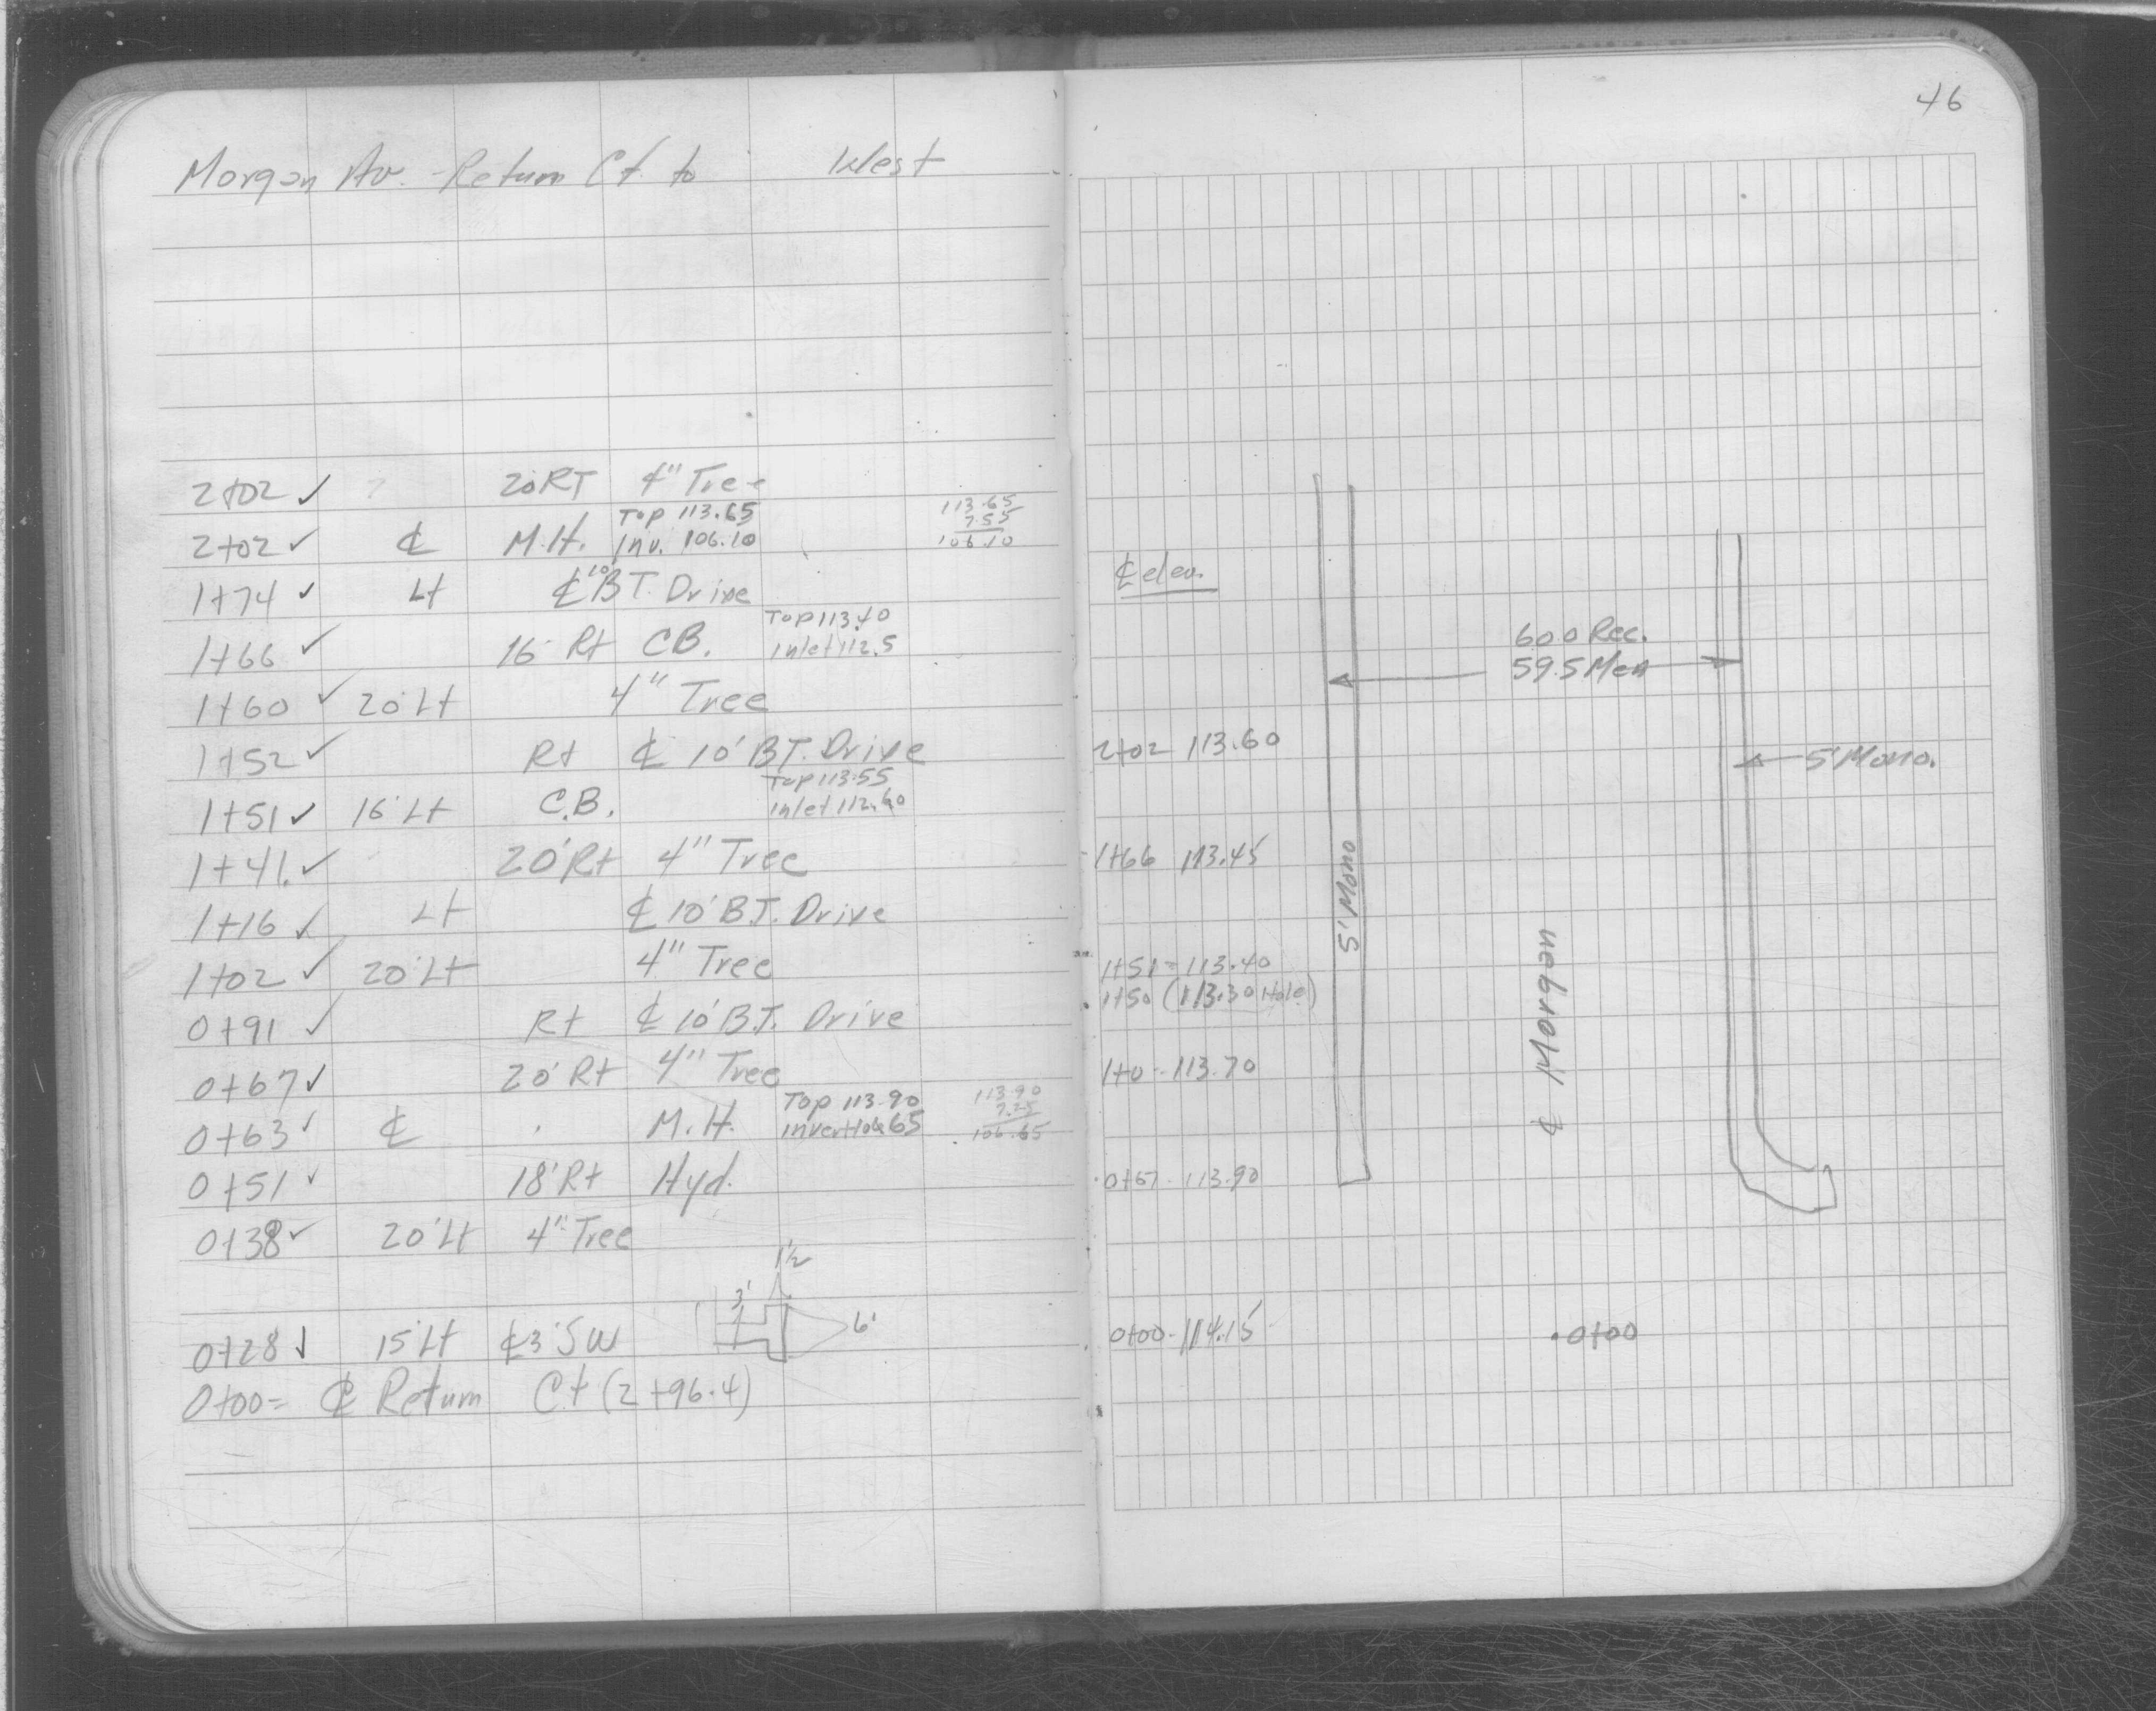 Morgan Av. - Return Ct. to West
2+02 ✓ 20'RT 4" Tree
2+02 ✓ ℄ M.H. Top 113.65 Inv. 106.10
113.65
7.55
106.10
1+74 ✓ Lt ℄ 10' BT. Drive
1+66 ✓ 16' Rt C.B. Top 113.40 Inlet 112.5
1+60 ✓ 20' Lt 4" Tree
1+52 ✓ Rt ℄ 10' BT. Drive
1+51 ✓ 16' Lt C.B. Top 113.55 Inlet 112.60
1+41 ✓ 20' Rt 4" Tree
1+16 ✓ Lt ℄ 10' B.T. Drive
1+02 ✓ 20' Lt 4" Tree
0+91 ✓ Rt ℄ 10' B.T. Drive
0+67 ✓ 20' Rt 4" Tree
0+63 ✓ ℄ M.H. Top 113.90 invert 106.65
113.90
7.25
106.65
0+51 ✓ 18' Rt Hyd.
0+38 ✓ 20' Lt 4" Tree
1½
3'
6'
0+28 ✓ 15' Lt ℄ 3' SW
0+00 = ℄ Return Ct (2+96.4)
46
℄ elev.
60.0 Rec.
59.5 Mea
2+02 113.60
5' Mono.
1+66 113.45
5' Mono
1+51 - 113.40
1+50 (113.30 Hole)
℄ Morgan
1+0 - 113.70
0+67 - 113.90
0+00 - 114.15
0+00